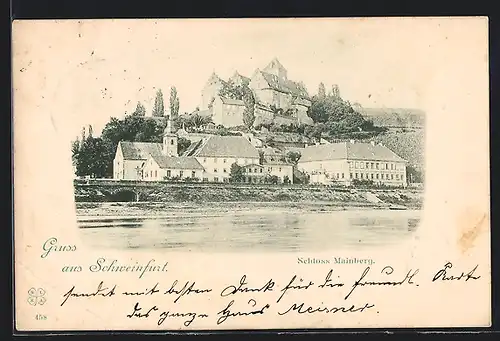 Gruss
aus Schweinfurt.
Schloss Mainberg.
sendet mit besten Dank für die freundl. Karte
das ganze Haus Meisner
458